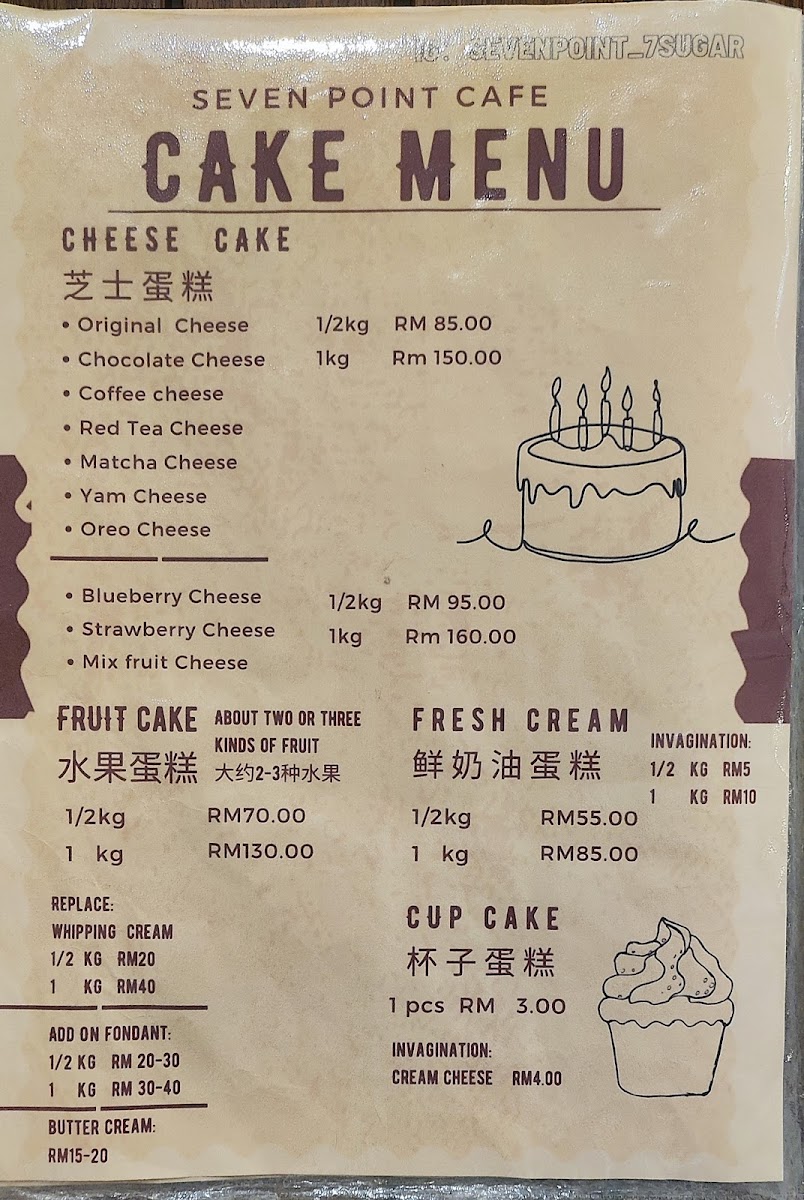 IG: SEVENPOINT_7SUGAR
SEVEN POINT CAFE
CAKE MENU
CHEESE CAKE
芝士蛋糕
• Original Cheese 1/2kg RM 85.00
• Chocolate Cheese 1kg Rm 150.00
• Coffee cheese
• Red Tea Cheese
• Matcha Cheese
• Yam Cheese
• Oreo Cheese
• Blueberry Cheese 1/2kg RM 95.00
• Strawberry Cheese 1kg Rm 160.00
• Mix fruit Cheese
FRUIT CAKE ABOUT TWO OR THREE
KINDS OF FRUIT
水果蛋糕 大约2-3种水果
1/2kg RM70.00
1 kg RM130.00
FRESH CREAM
鲜奶油蛋糕
1/2kg RM55.00
1 kg RM85.00
INVAGINATION:
1/2 KG RM5
1 KG RM10
REPLACE:
WHIPPING CREAM
1/2 KG RM20
1 KG RM40
ADD ON FONDANT:
1/2 KG RM 20-30
1 KG RM 30-40
BUTTER CREAM:
RM15-20
CUP CAKE
杯子蛋糕
1 pcs RM 3.00
INVAGINATION:
CREAM CHEESE RM4.00